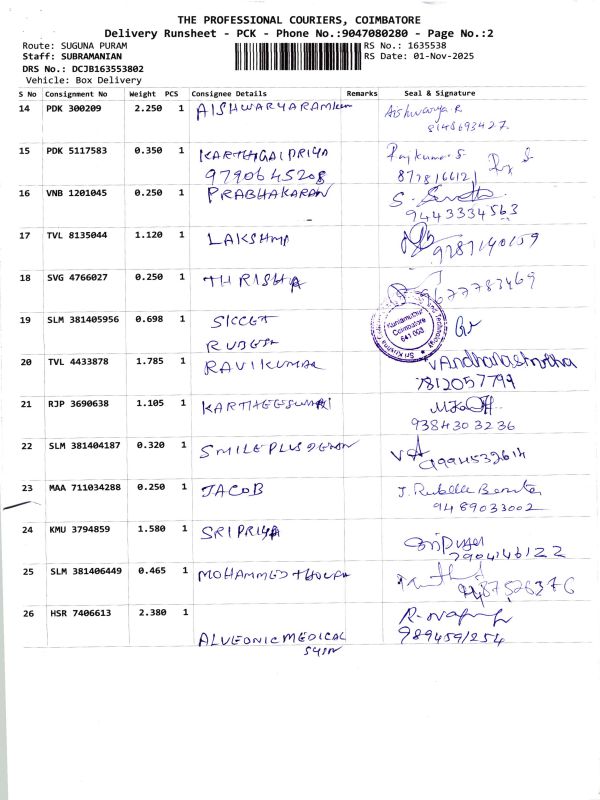 THE PROFESSIONAL COURIERS, COIMBATORE
Delivery Runsheet - PCK - Phone No.:9047080280 - Page No.:2
Route: SUGUNA PURAM RS No.: 1635538
Staff: SUBRAMANIAN RS Date: 01-Nov-2025
DRS No.: DCJB163553802
Vehicle: Box Delivery
S No Consignment No Weight PCS Consignee Details Remarks Seal & Signature
14 PDK 300209 2.250 1 AISHWARYARAM Aishwarya R
8148693427
15 PDK 5117583 0.350 1 KARTHIGAIPRIYA Rajkumar S
9790645208
16 VNB 1201045 0.250 1 PRABHAKARAN S.
9443334563
17 TVL 8135044 1.120 1 LAKSHMI
9787140159
18 SVG 4766027 0.250 1 THRISHA
9677783469
19 SLM 381405956 0.698 1 SKCET
Kuniamuthur
Coimbatore
641 008
RUBESH
20 TVL 4433878 1.785 1 RAVIKUMAR
7812057799
21 RJP 3690638 1.105 1 KARTHEESWARI
9384303236
22 SLM 381404187 0.320 1 SMILEPLUSDEN
9994532614
23 MAA 711034288 0.250 1 JACOB J.
9489033002
24 KMU 3794859 1.580 1 SRIPRIYA Sripriya
7904146122
25 SLM 381406449 0.465 1 MOHAMMED
26 HSR 7406613 2.380 1
ALVEONICMEDICAL